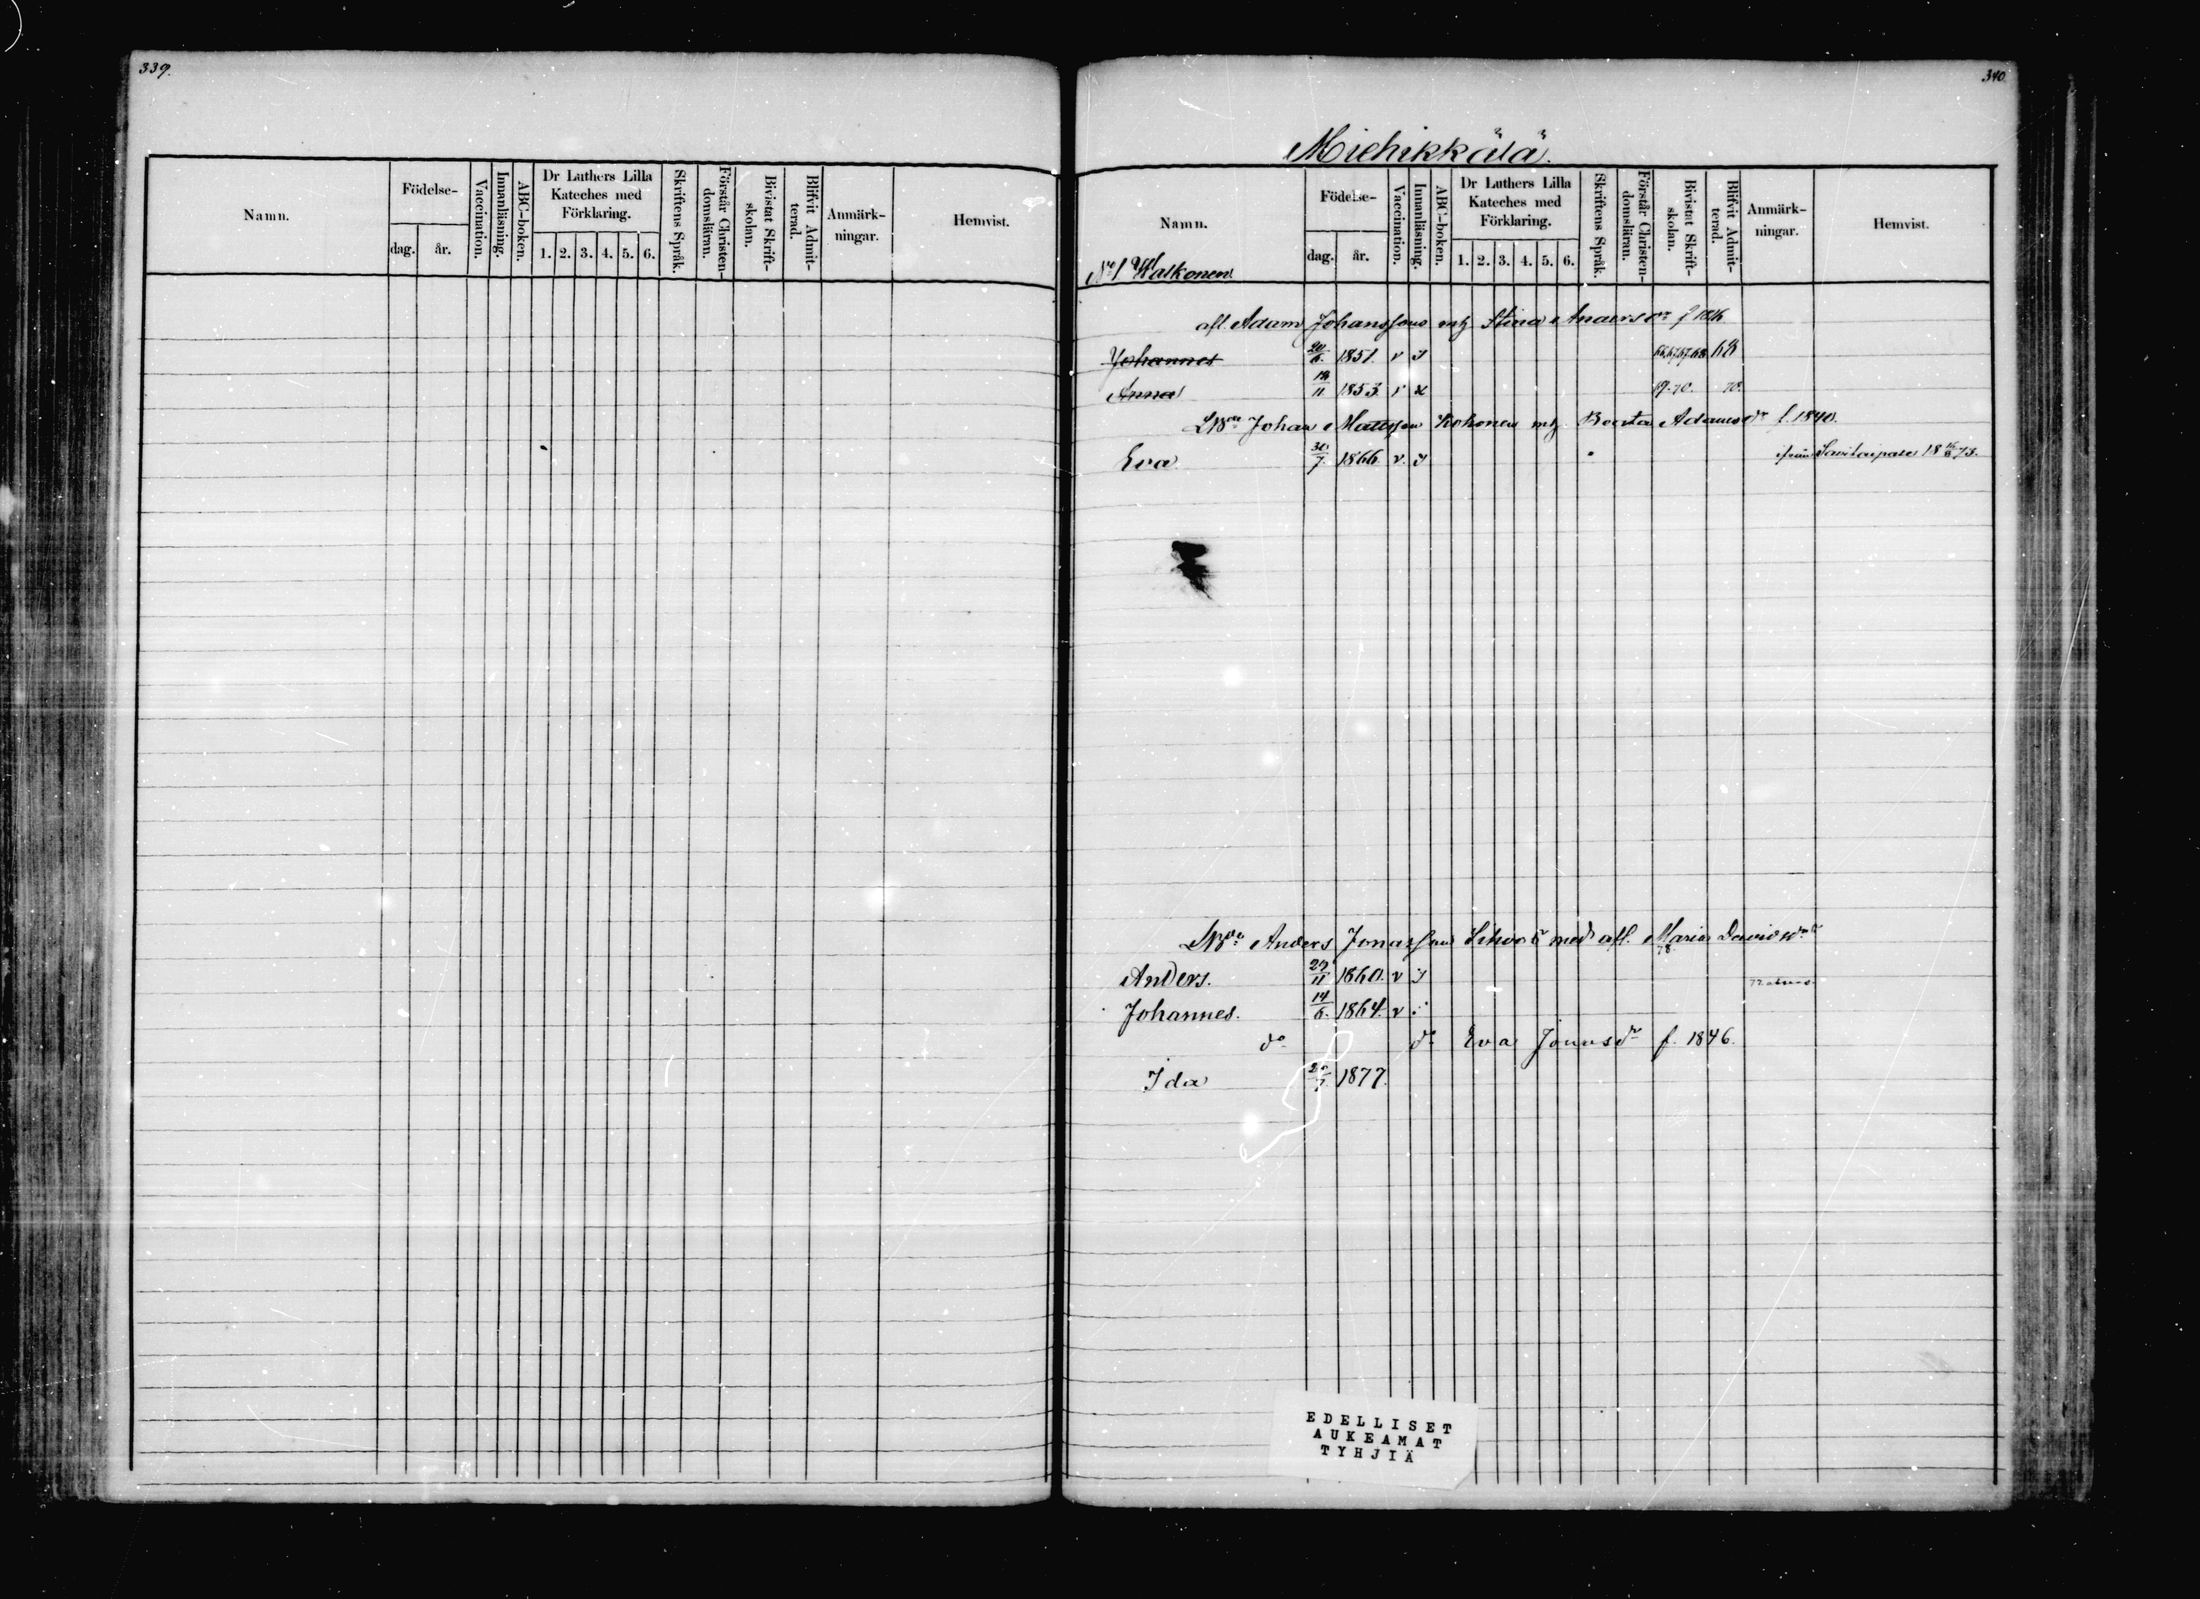 339.
Namn.
Födelse-
dag.
år.
Vaccination.
Innanläsning.
ABC-boken.
Dr Luthers Lilla
Kateches med
Förklaring.
1. 2. 3. 4. 5. 6.
Skriftens Språk.
Förstår Christen-
domsläran.
Bivistat Skrift-
skolan.
Blifvit Admit-
terad.
Anmärk-
ningar.
Hemvist.
340
Miehikkälä.
Namn.
Födelse-
dag.
år.
Vaccination.
Innanläsning.
ABC-boken.
Dr Luthers Lilla
Kateches med
Förklaring.
1. 2. 3. 4. 5. 6.
Skriftens Språk.
Förstår Christen-
domsläran.
Bivistat Skrift-
skolan.
Blifvit Admit-
terad.
Anmärk-
ningar.
Hemvist.
No 1 Walkonen
afl. Adam Johansson mg Stina Andersdr f 1816
Johannes 20/6. 1851. v 68
Anna 11 1853. v x 69. 70. 70.
Johan Mattsson Kohonen mg Beata Adamsdr f. 1840.
Eva 30/7. 1866. v. ifrån Savitaipale 18 73.
Anders Jonasson med afl. Maria Davidsdr
78
Anders. 27/11 1860. v
Johannes. 14/6. 1864. v
do do Eva Jonasdr f. 1846.
Ida 1877.
EDELLISET
AUKEAMAT
TYHJIÄ